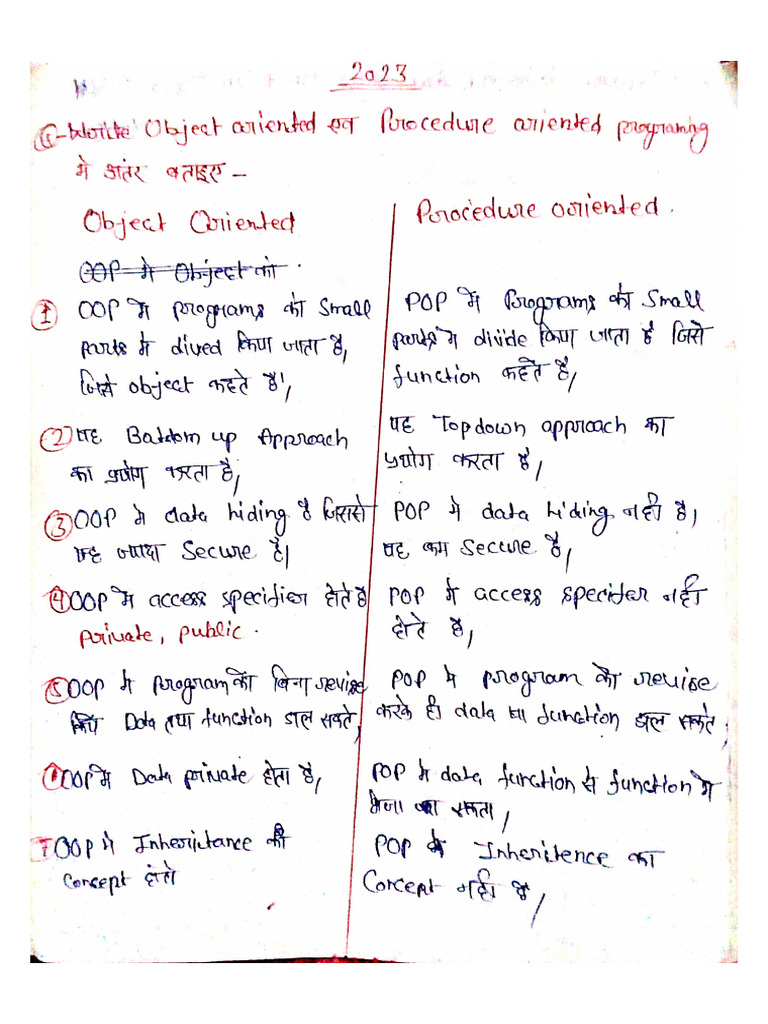 2023
Q-Write Object oriented एव Procedure oriented programing
मे अंतर बताइए -
Object Oriented
Procedure oriented.
OOP मे Object को .
① OOP मे programs को Small
parts मे dived किया जाता है,
जिसे object कहते है,
POP मे Programs को Small
parts मे divide किया जाता है जिसे
function कहते है,
② यह Bottom up Approach
का प्रयोग करता है,
यह Topdown approach का
प्रयोग करता है,
③ OOP मे data hiding है जिससे
यह ज्यादा Secure है।
POP मे data hiding नही है,
यह कम Secure है,
④ OOP मे access specifier होते है
private, public.
POP मे access specifer नही
होते है,
⑤ OOP मे program को बिना revise
किये Data तथा function डाल सकते,
POP मे program को revise
करके ही data या function डाल सकते,
⑥ OOP मे Data private होता है,
POP मे data function से function मे
भेजा जा सकता,
7 OOP मे Inheritance की
Concept होते
POP मे Inheritence का
Concept नही है,